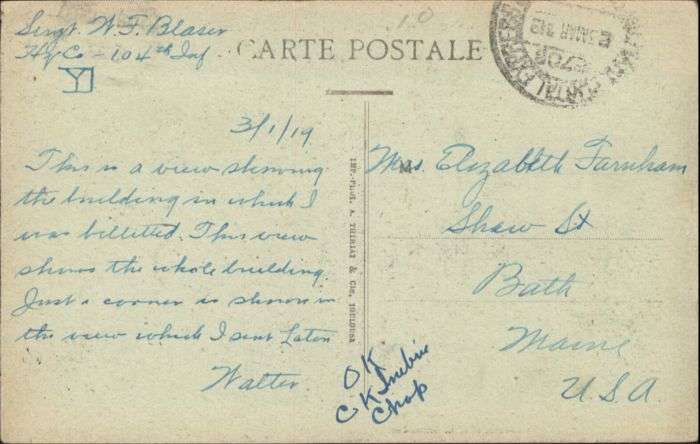 Sergt. W. F. Blaser
Hq Co - 104th Inf
Y
CARTE POSTALE
3/1/19
This is a view showing
the building in which I
was billetted. This view
shows the whole building.
Just a corner is shown in
the view which I sent Laton
Walter
OK
CK
Chap
IMP.-PHOT. A. THIRIAT & Cie, TOULOUSE
M
Mrs. Elizabeth Farnham
Shaw St
Bath
Maine
U.S.A.